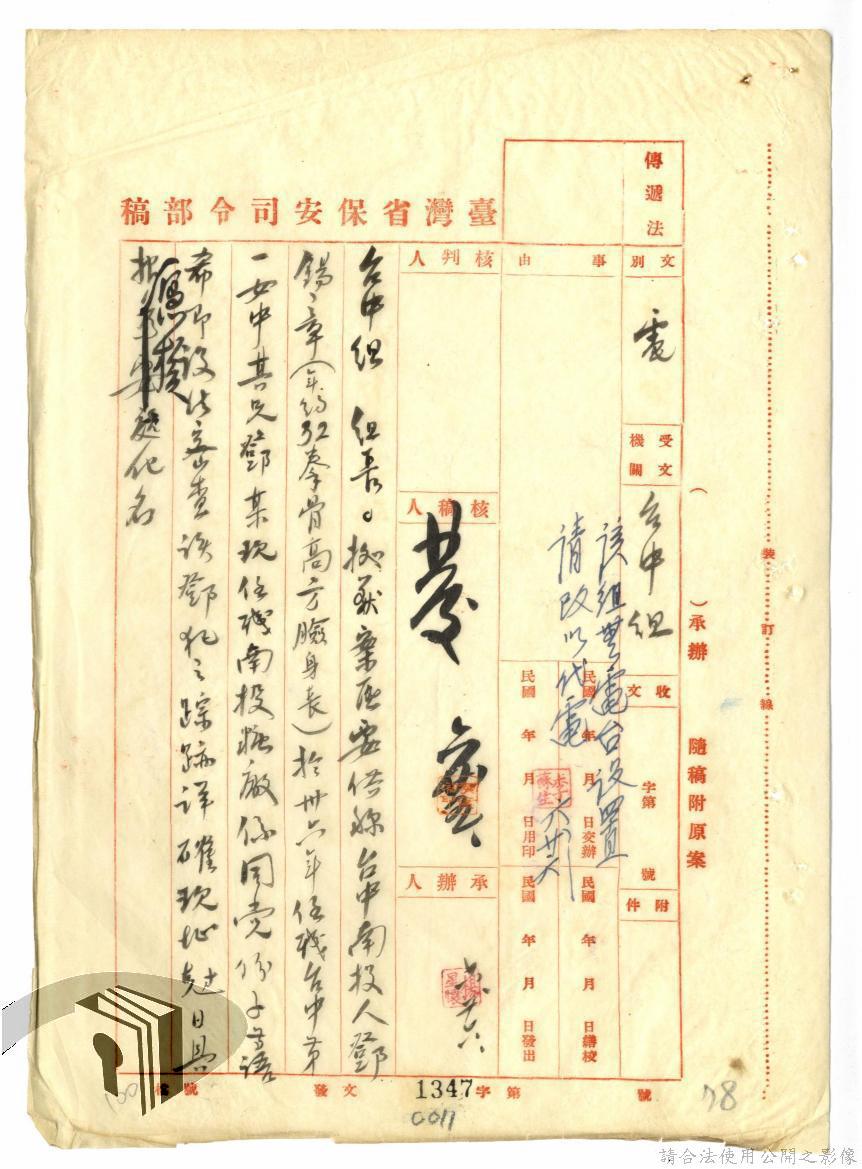 傳遞法
文別
電
受文機關
台中組
收文 字第 號
附件
事由
該組無電台設置
請改以代電
民國 年 月 日交辦
民國 年 月 日繕校
民國 年 月 日用印
民國 年 月 日發出
李蘇生
( )承辦 隨稿附原案
裝訂線
臺灣省保安司令部稿
核判人
核稿人
承辦人
台中組 組長。據獻案匪要供稱台中南投人鄧
錫章(年約32拳骨高方臉身長)於卅六年任職台中第
一女中其兄鄧某現任職南投糖廠係同黨份子等語
希即設法密查該鄧犯之踪跡詳確現址尅日具
報憑核 化名
發文 字第 1347 號
檔號
0011
78
請合法使用公開之影像